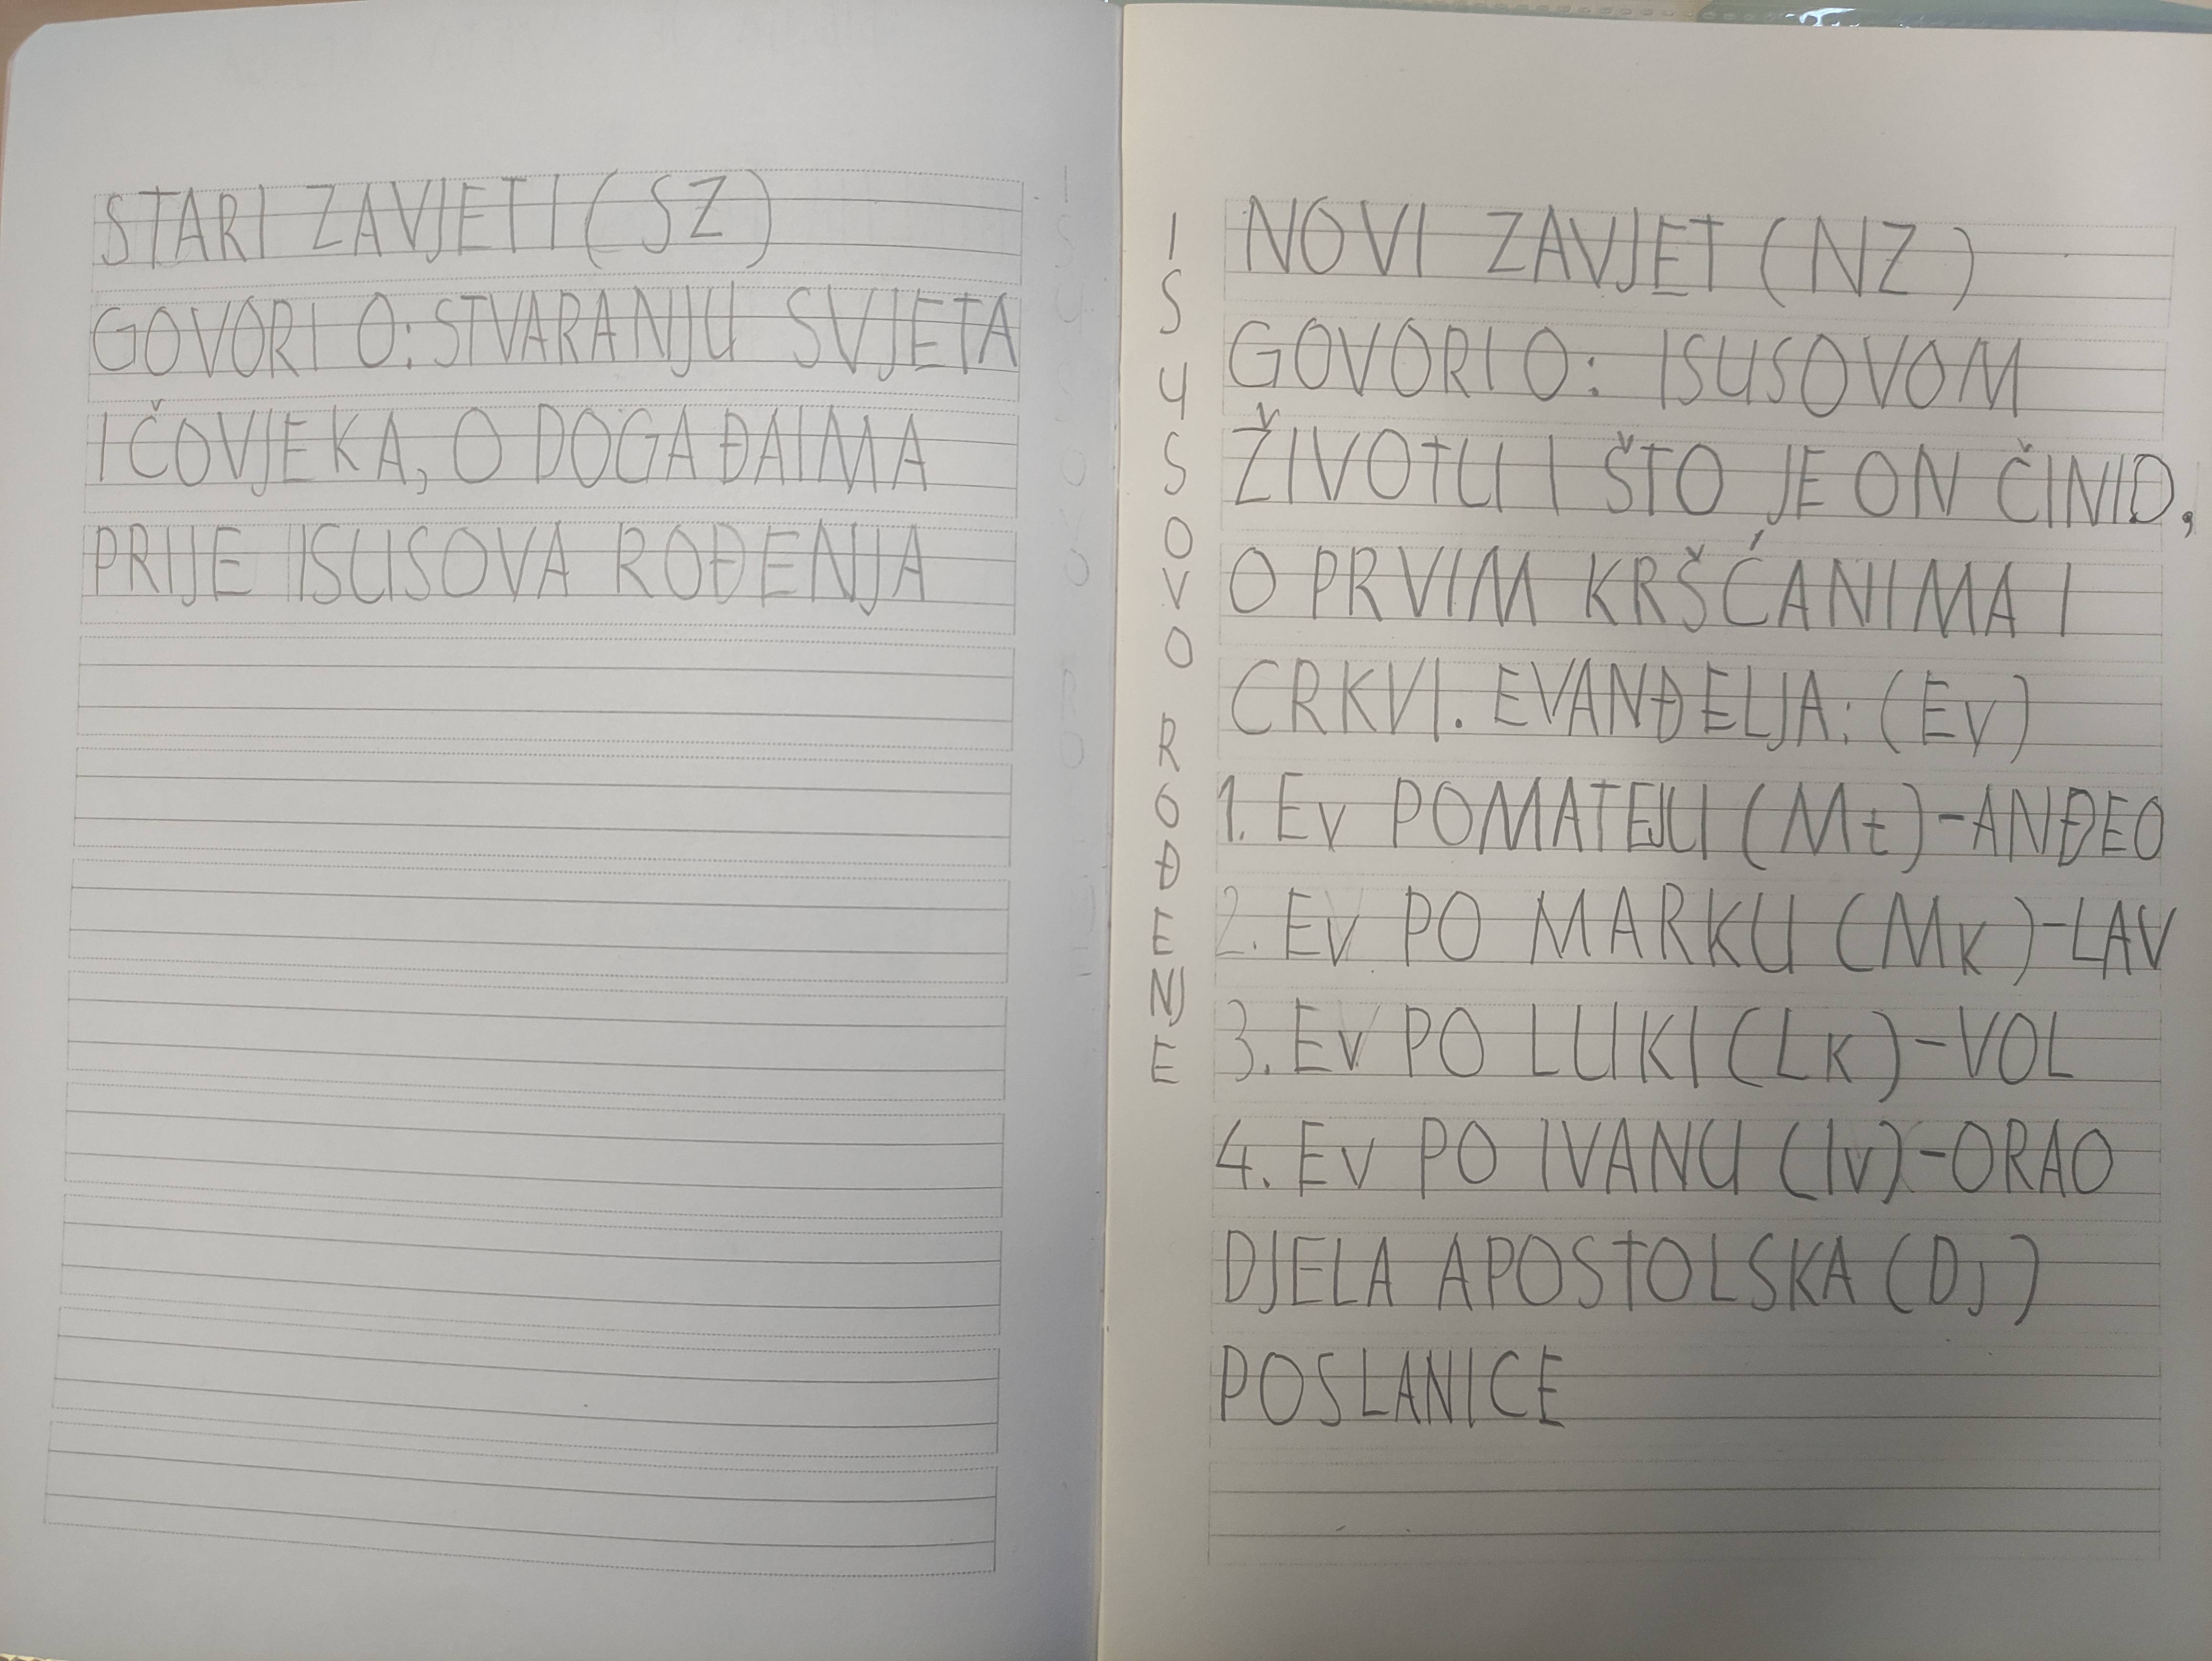 STARI ZAVJETI (SZ)
GOVORI O: STVARANJU SVJETA
I ČOVJEKA, O DOGAĐAIMA
PRIJE ISUSOVA ROĐENJA
ISUSOVO ROĐENJE
NOVI ZAVJET (NZ)
GOVORI O: ISUSOVOM
ŽIVOTU I ŠTO JE ON ČINIO,
O PRVIM KRŠĆANIMA I
CRKVI. EVANĐELJA: (Ev)
1. Ev POMATEJU (Mt)-ANĐEO
2. Ev PO MARKU (Mk)-LAV
3. Ev PO LUKI (Lk)-VOL
4. Ev PO IVANU (Iv)-ORAO
DJELA APOSTOLSKA (Dj)
POSLANICE